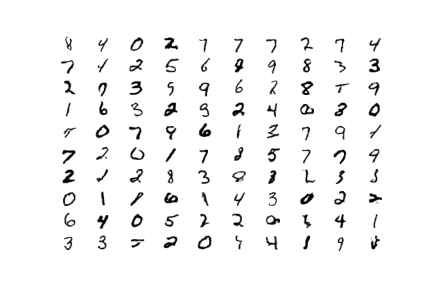 8 4 0 2 7 7 7 2 7 4
7 1 2 5 6 8 9 8 3 3
2 7 3 9 9 6 8 8 7 9
1 6 3 2 9 2 4 0 8 0
5 0 7 9 6 1 2 7 9 1
7 2 0 1 7 8 5 7 7 9
2 1 2 8 3 8 3 2 3 3
0 1 1 6 1 4 3 0 2 2
6 4 0 5 2 2 0 3 4 1
3 3 5 2 0 4 4 1 9